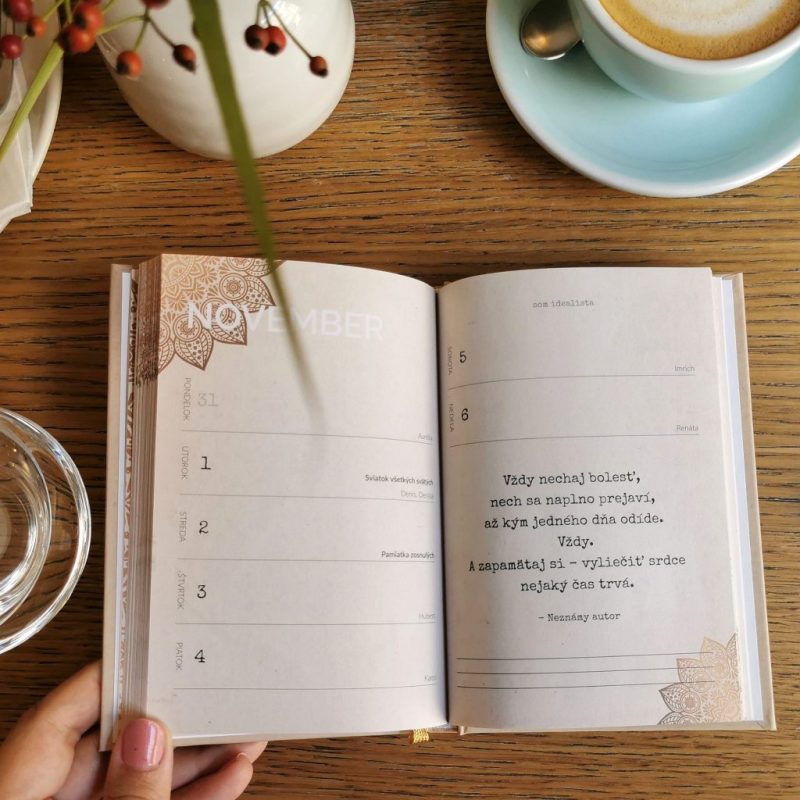 NOVEMBER
PONDELOK
31
Aurélia
UTOROK
1
Sviatok všetkých svätých
Denis, Denisa
STREDA
2
Pamiatka zosnulých
ŠTVRTOK
3
Hubert
PIATOK
4
Karol
som idealista
SOBOTA
5
Imrich
NEDEĽA
6
Renáta
Vždy nechaj bolesť,
nech sa naplno prejaví,
až kým jedného dňa odíde.
Vždy.
A zapamätaj si - vyliečiť srdce
nejaký čas trvá.
- Neznámy autor